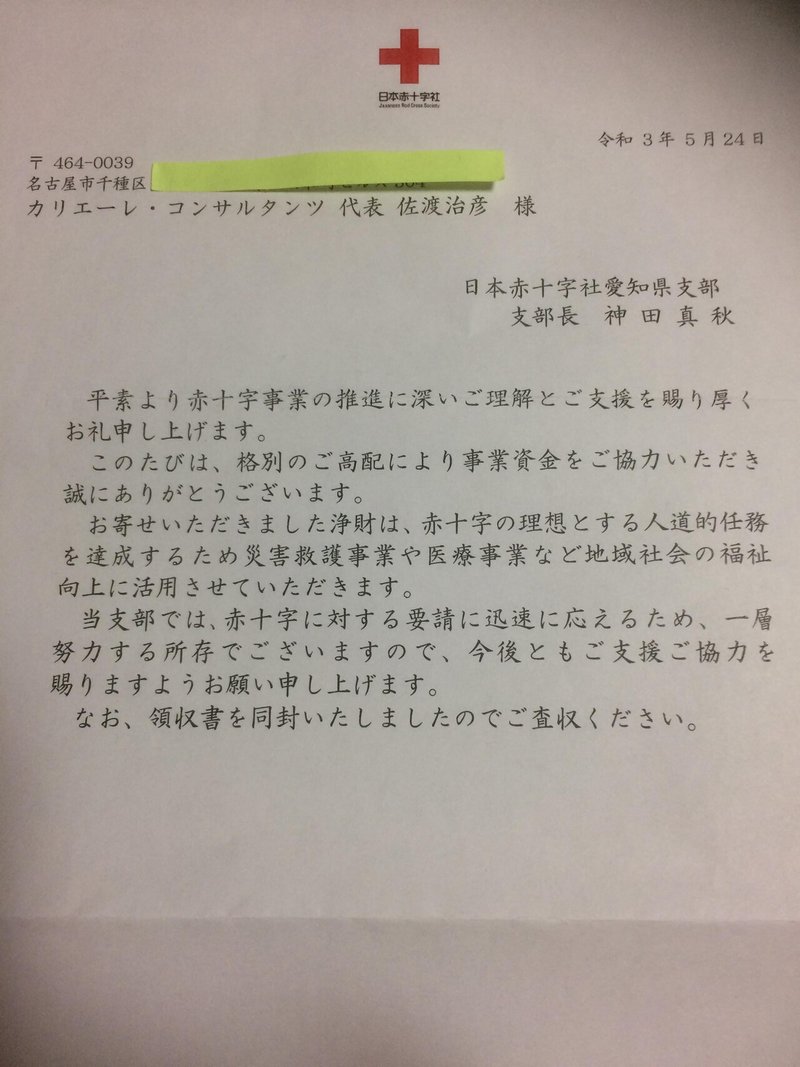 日本赤十字社
Japanese Red Cross Society
令和 3 年 5 月 24 日
〒 464-0039
名古屋市千種区
カリエーレ・コンサルタンツ 代表 佐渡治彦 様
日本赤十字社愛知県支部
支部長 神 田 真 秋
平素より赤十字事業の推進に深いご理解とご支援を賜り厚く
お礼申し上げます。
このたびは、格別のご高配により事業資金をご協力いただき
誠にありがとうございます。
お寄せいただきました浄財は、赤十字の理想とする人道的任務
を達成するため災害救護事業や医療事業など地域社会の福祉
向上に活用させていただきます。
当支部では、赤十字に対する要請に迅速に応えるため、一層
努力する所存でございますので、今後ともご支援ご協力を
賜りますようお願い申し上げます。
なお、領収書を同封いたしましたのでご査収ください。